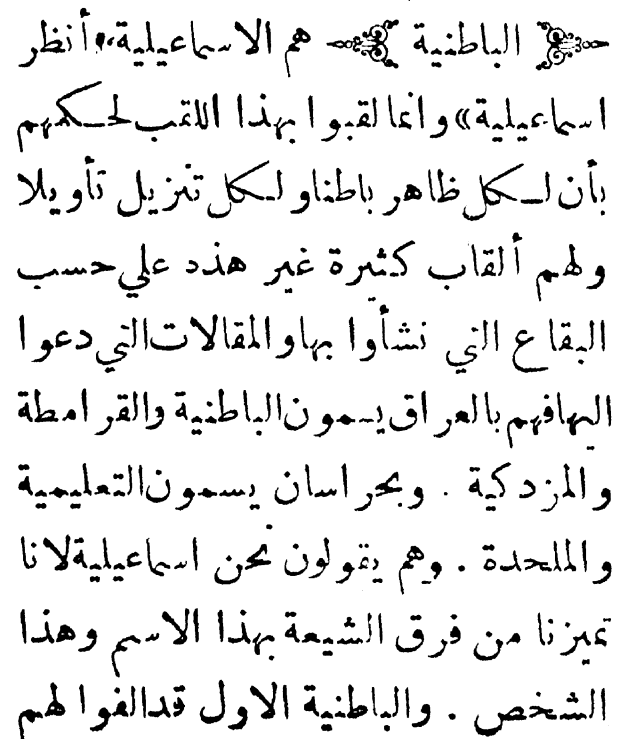 الباطنية هم الاسماعيلية «أنظر
اسماعيلية» وانما لقبوا بهذا اللقب لحكمهم
بأن لكل ظاهر باطنا ولكل تنزيل تأويلا
ولهم ألقاب كثيرة غير هذه علي حسب
البقاع التي نشأوا بها والمقالات التي دعوا
اليها فهم بالعراق يسمون الباطنية والقرامطة
والمزدكية . وبخراسان يسمون التعليمية
والملحدة . وهم يقولون نحن اسماعيلية لانا
تميزنا من فرق الشيعة بهذا الاسم وهذا
الشخص . والباطنية الاول قد الفوا لهم